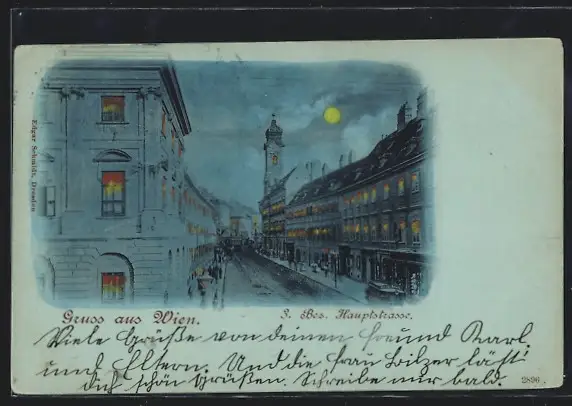 Edgar Schmidt, Dresden
Gruss aus Wien.
3. Bes. Hauptstrasse.
Viele Grüße von deinen Freund Karl
und Eltern. Und die Frau läßt
dich schön Grüßen. Schreibe mir bald.
2896